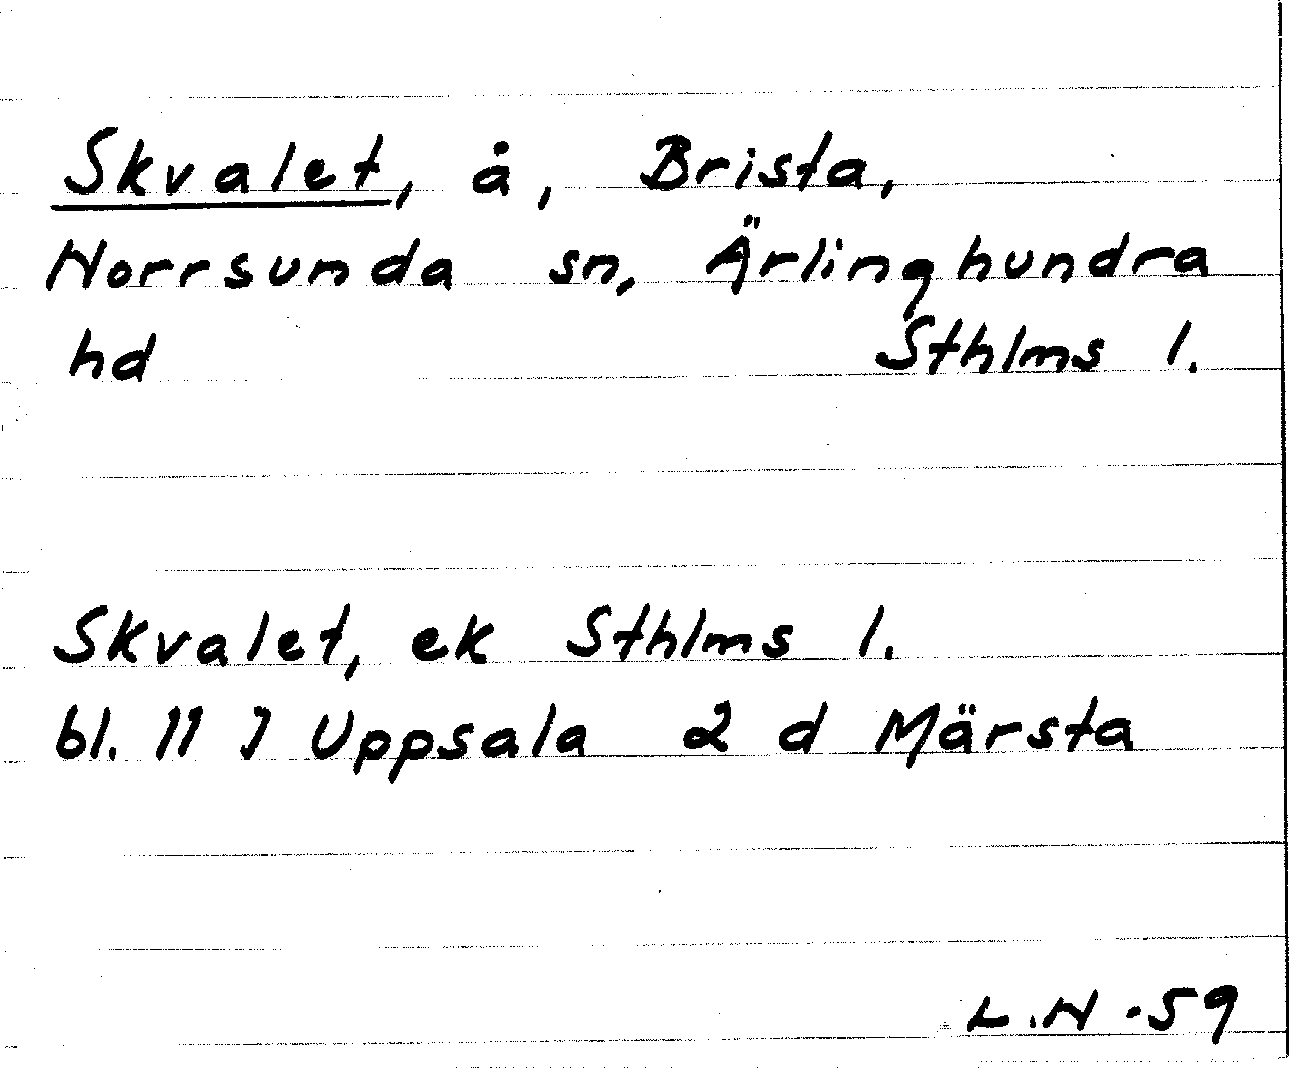 Skvalet, å, Brista,
Norrsunda sn, Ärlinghundra
hd Sthlms l.
Skvalet, ek Sthlms l.
bl. 11 J Uppsala 2 d Märsta
L.N -59